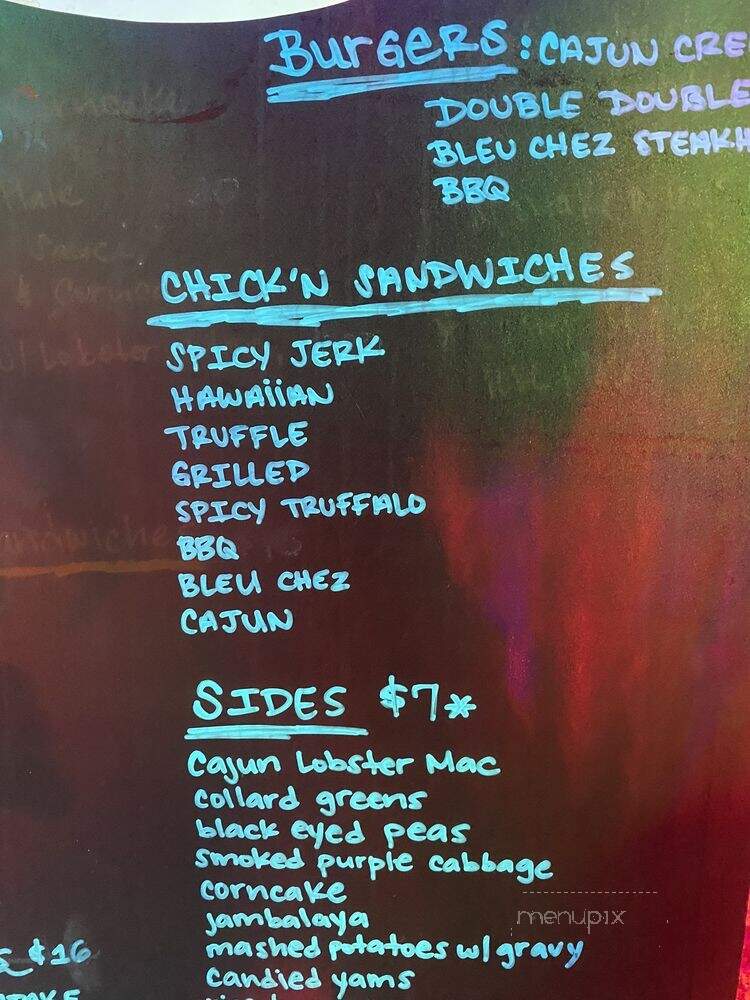 BURGERS: CAJUN CRE
DOUBLE DOUBLE
BLEU CHEZ STEAKH
BBQ
CHICK'N SANDWICHES
SPICY JERK
HAWAiiAN
TRUFFLE
GRILLED
SPICY TRUFFALO
BBQ
BLEU CHEZ
CAJUN
SIDES $7*
Cajun Lobster Mac
collard greens
black eyed peas
smoked purple cabbage
corncake
jambalaya
mashed potatoes w/ gravy
candied yams
$16
menupix